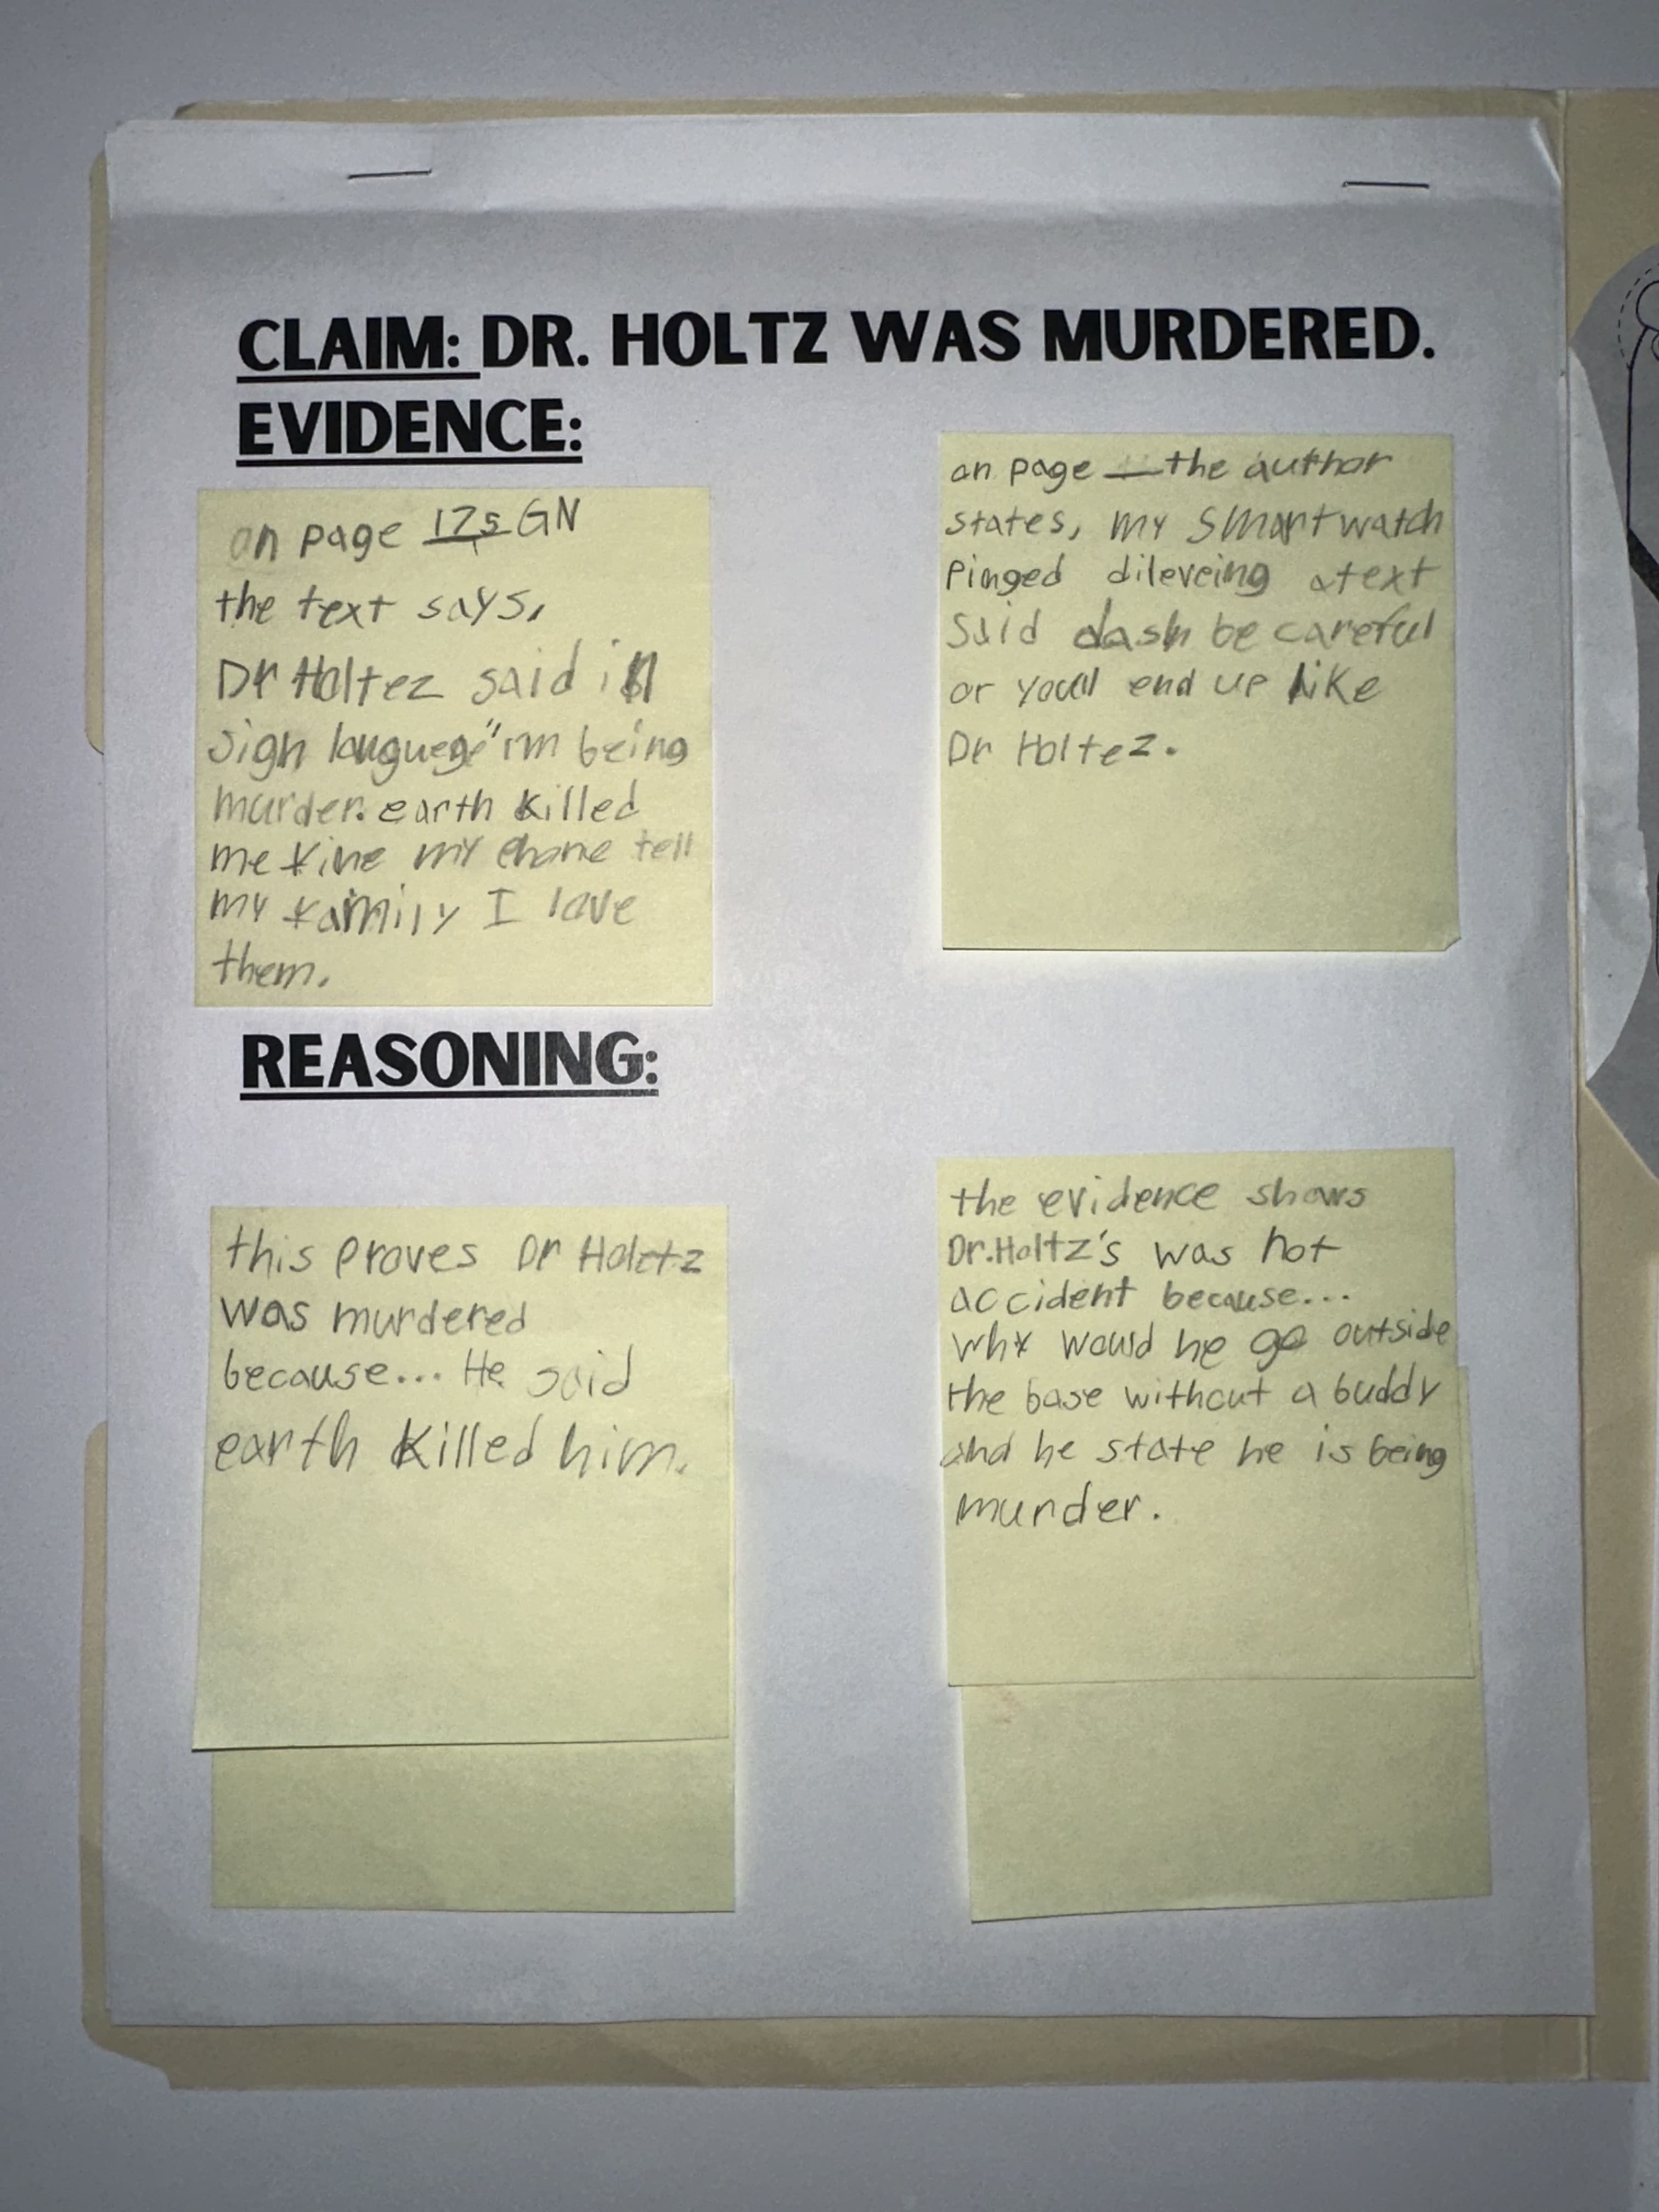 CLAIM: DR. HOLTZ WAS MURDERED.
EVIDENCE:
on page 175 GN
the text says,
Dr Holtez said in
sign languege "im being
murder. earth killed
me fine my phone tell
my family I love
them.
on page __ the author
states, my smartwatch
Pinged dileveing a text
said dash be careful
or youl end up like
Dr Holtez.
REASONING:
this proves Dr Holtz
was murdered
because... He said
earth killed him.
the evidence shows
Dr.Holtz's was not
accident because...
why would he go outside
the base without a buddy
and he state he is being
murder.